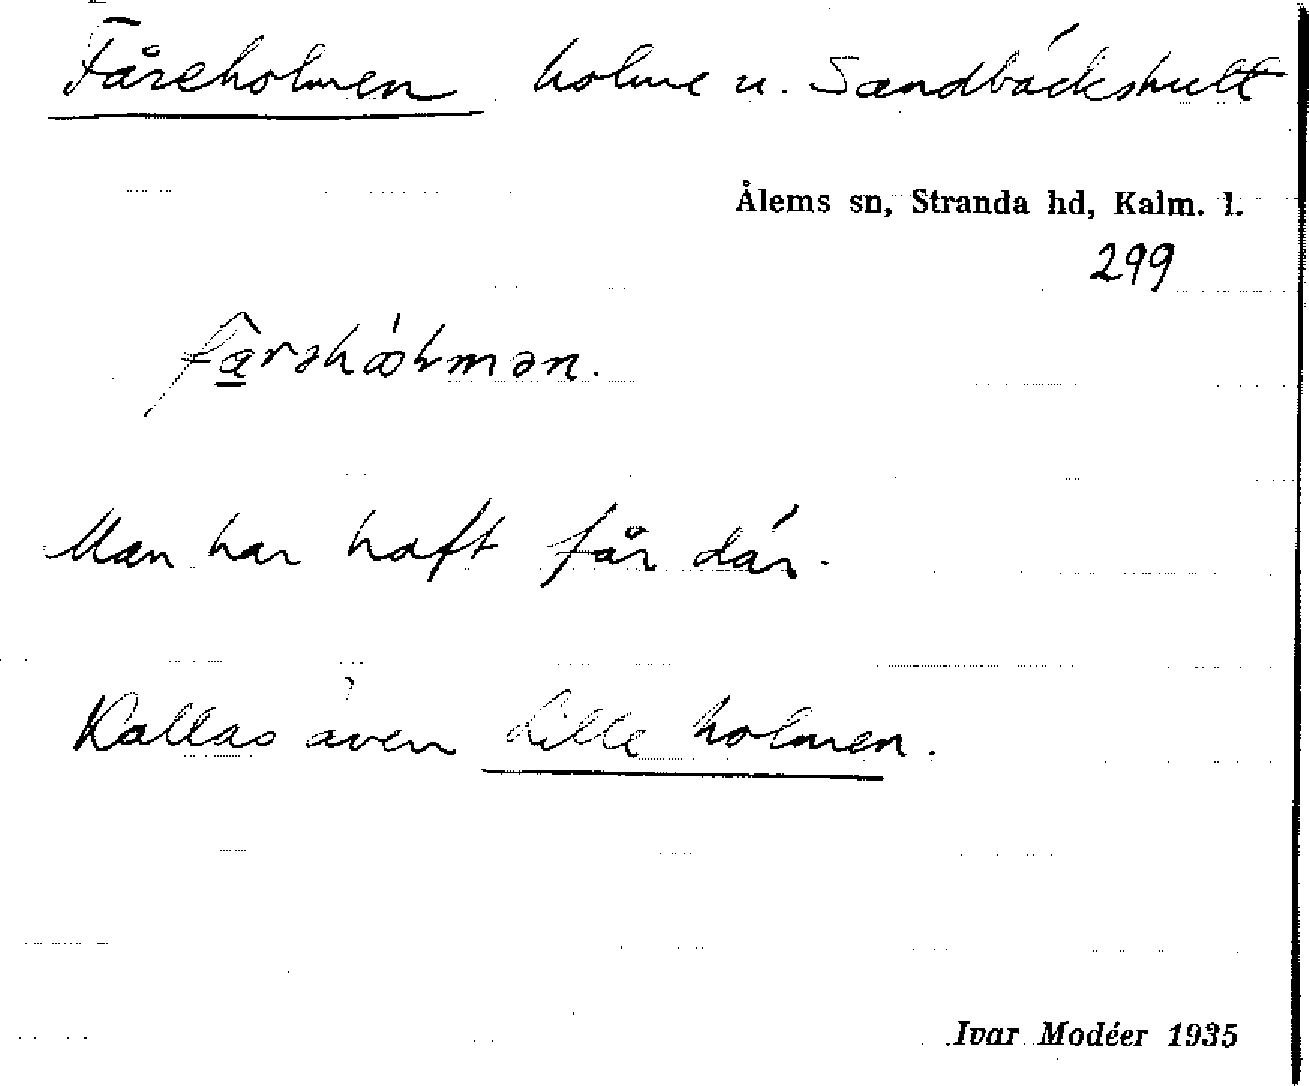 Fåreholmen holme u. Sandbäckshult
Ålems sn, Stranda hd, Kalm. l.
299
Man har haft får där.
Kallas även Lille holmen.
Ivar Modéer 1935